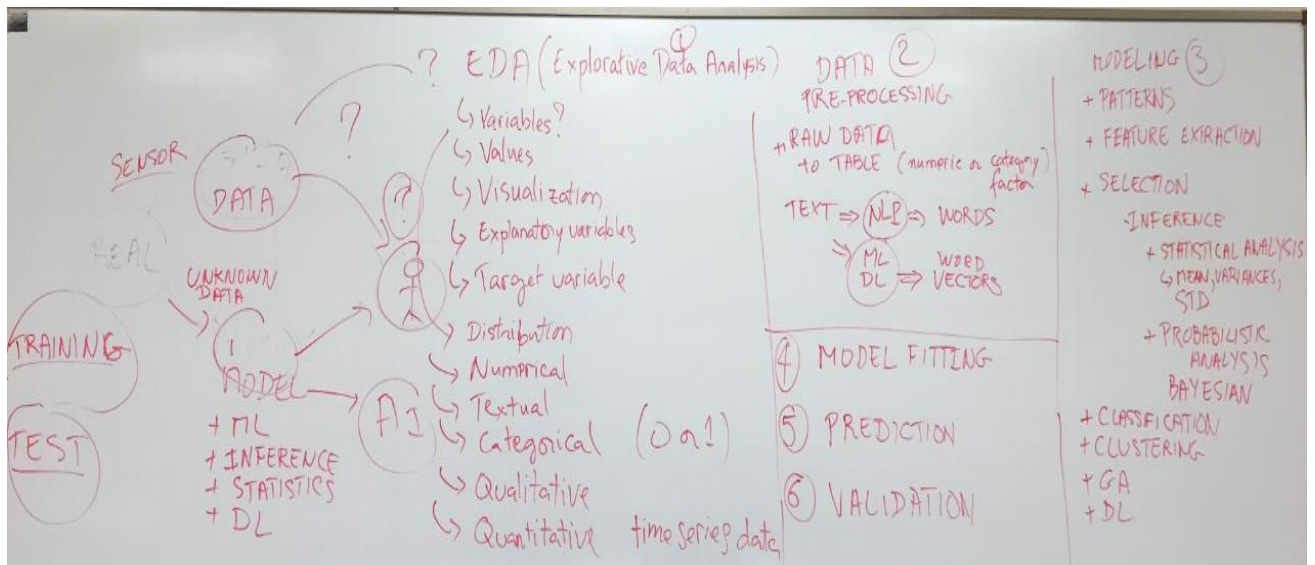 SENSOR
DATA
REAL
UNKNOWN
DATA
MODEL
+ ML
+ INFERENCE
+ STATISTICS
+ DL
TRAINING
TEST
?
?
?
AI
①
EDA (Explorative Data Analysis)
↳ Variables?
↳ Values
↳ Visualization
↳ Explanatory variables
↳ Target variable
↳ Distribution
↳ Numerical
↳ Textual
↳ Categorical (0 or 1)
↳ Qualitative
↳ Quantitative time series data
DATA ②
PRE-PROCESSING
+ RAW DATA
to TABLE (numeric or category)
factor
TEXT ⇒ NLP ⇒ WORDS
ML WORD
DL ⇒ VECTORS
④ MODEL FITTING
⑤ PREDICTION
⑥ VALIDATION
MODELING ③
+ PATTERNS
+ FEATURE EXTRACTION
+ SELECTION
-INFERENCE
+ STATISTICAL ANALYSIS
↳ MEAN, VARIANCES,
STD
+ PROBABILISTIC
ANALYSIS
BAYESIAN
+ CLASSFICATION
+ CLUSTERING
+ GA
+ DL